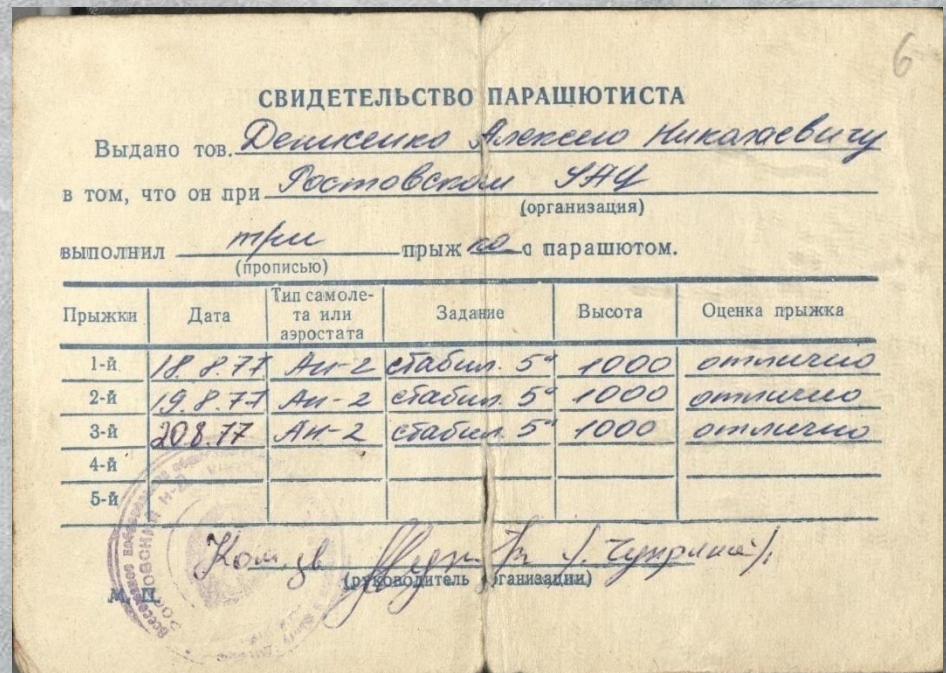 6
СВИДЕТЕЛЬСТВО ПАРАШЮТИСТА
Выдано тов. Денисенко Алексею Николаевичу
в том, что он при Ростовском УАЦ
(организация)
выполнил три прыжка с парашютом.
(прописью)
Прыжки Дата Тип самоле-та или аэростата Задание Высота Оценка прыжка
1-й 18.8.77 Ан-2 стабил. 5" 1000 отлично
2-й 19.8.77 Ан-2 стабил. 5" 1000 отлично
3-й 20.8.77 Ан-2 стабил. 5" 1000 отлично
4-й
5-й
Ком. зв. /Чуприна/
(руководитель организации)
М. П.